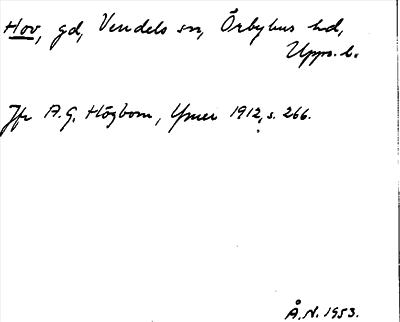 Hov, gd, Vendels sn, Örbyhus hd,
Upps. l.
Jfr A.G. Högbom, Ymer 1912, s. 266.
Å.N. 1953.